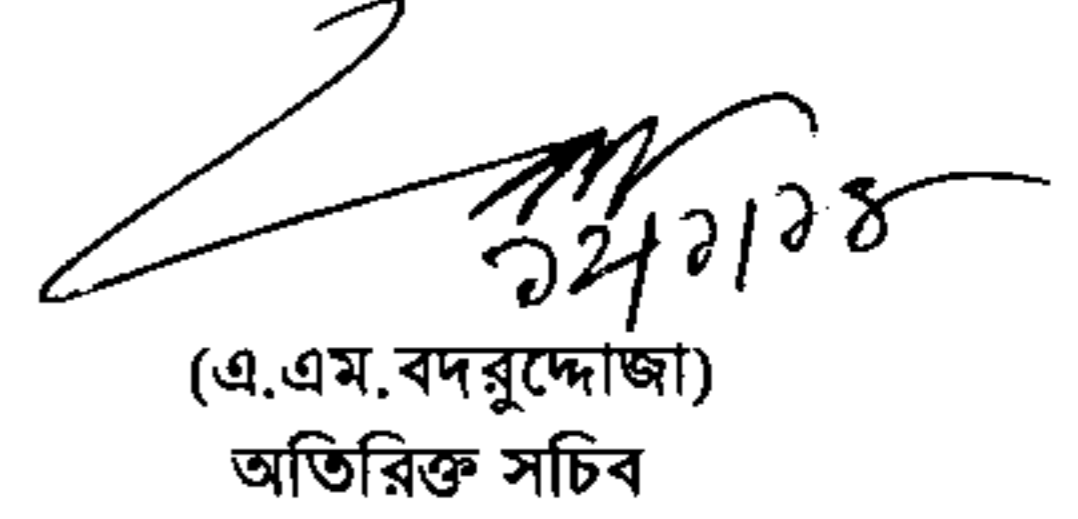 ১২/১/১৪
(এ.এম.বদরুদ্দোজা)
অতিরিক্ত সচিব